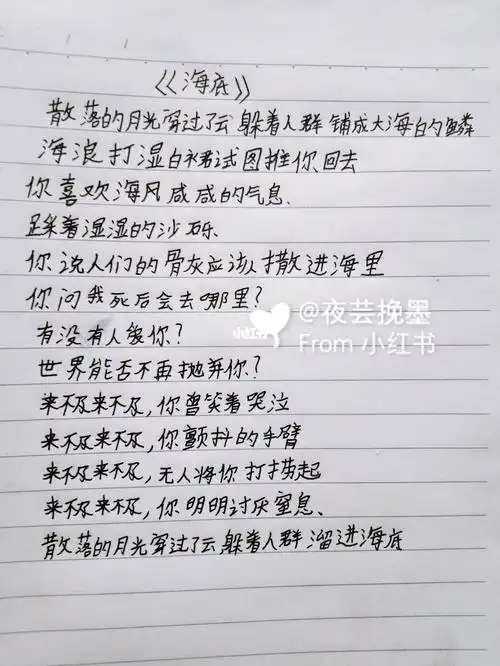 《海底》
散落的月光穿过了云 躲着人群 铺成大海白的鳞
海浪打湿白裙试图推你回去
你喜欢海风咸咸的气息、
踩着湿湿的沙砾、
你说人们的骨灰应该撒进海里
你问我死后会去哪里?
有没有人爱你?
世界能否不再抛弃你?
来不及来不及,你曾笑着哭泣
来不及来不及,你颤抖的手臂
来不及来不及,无人将你打捞起
来不及来不及,你明明讨厌窒息、
散落的月光穿过了云 躲着人群 溜进海底
小红书
@夜芸挽墨
From 小红书